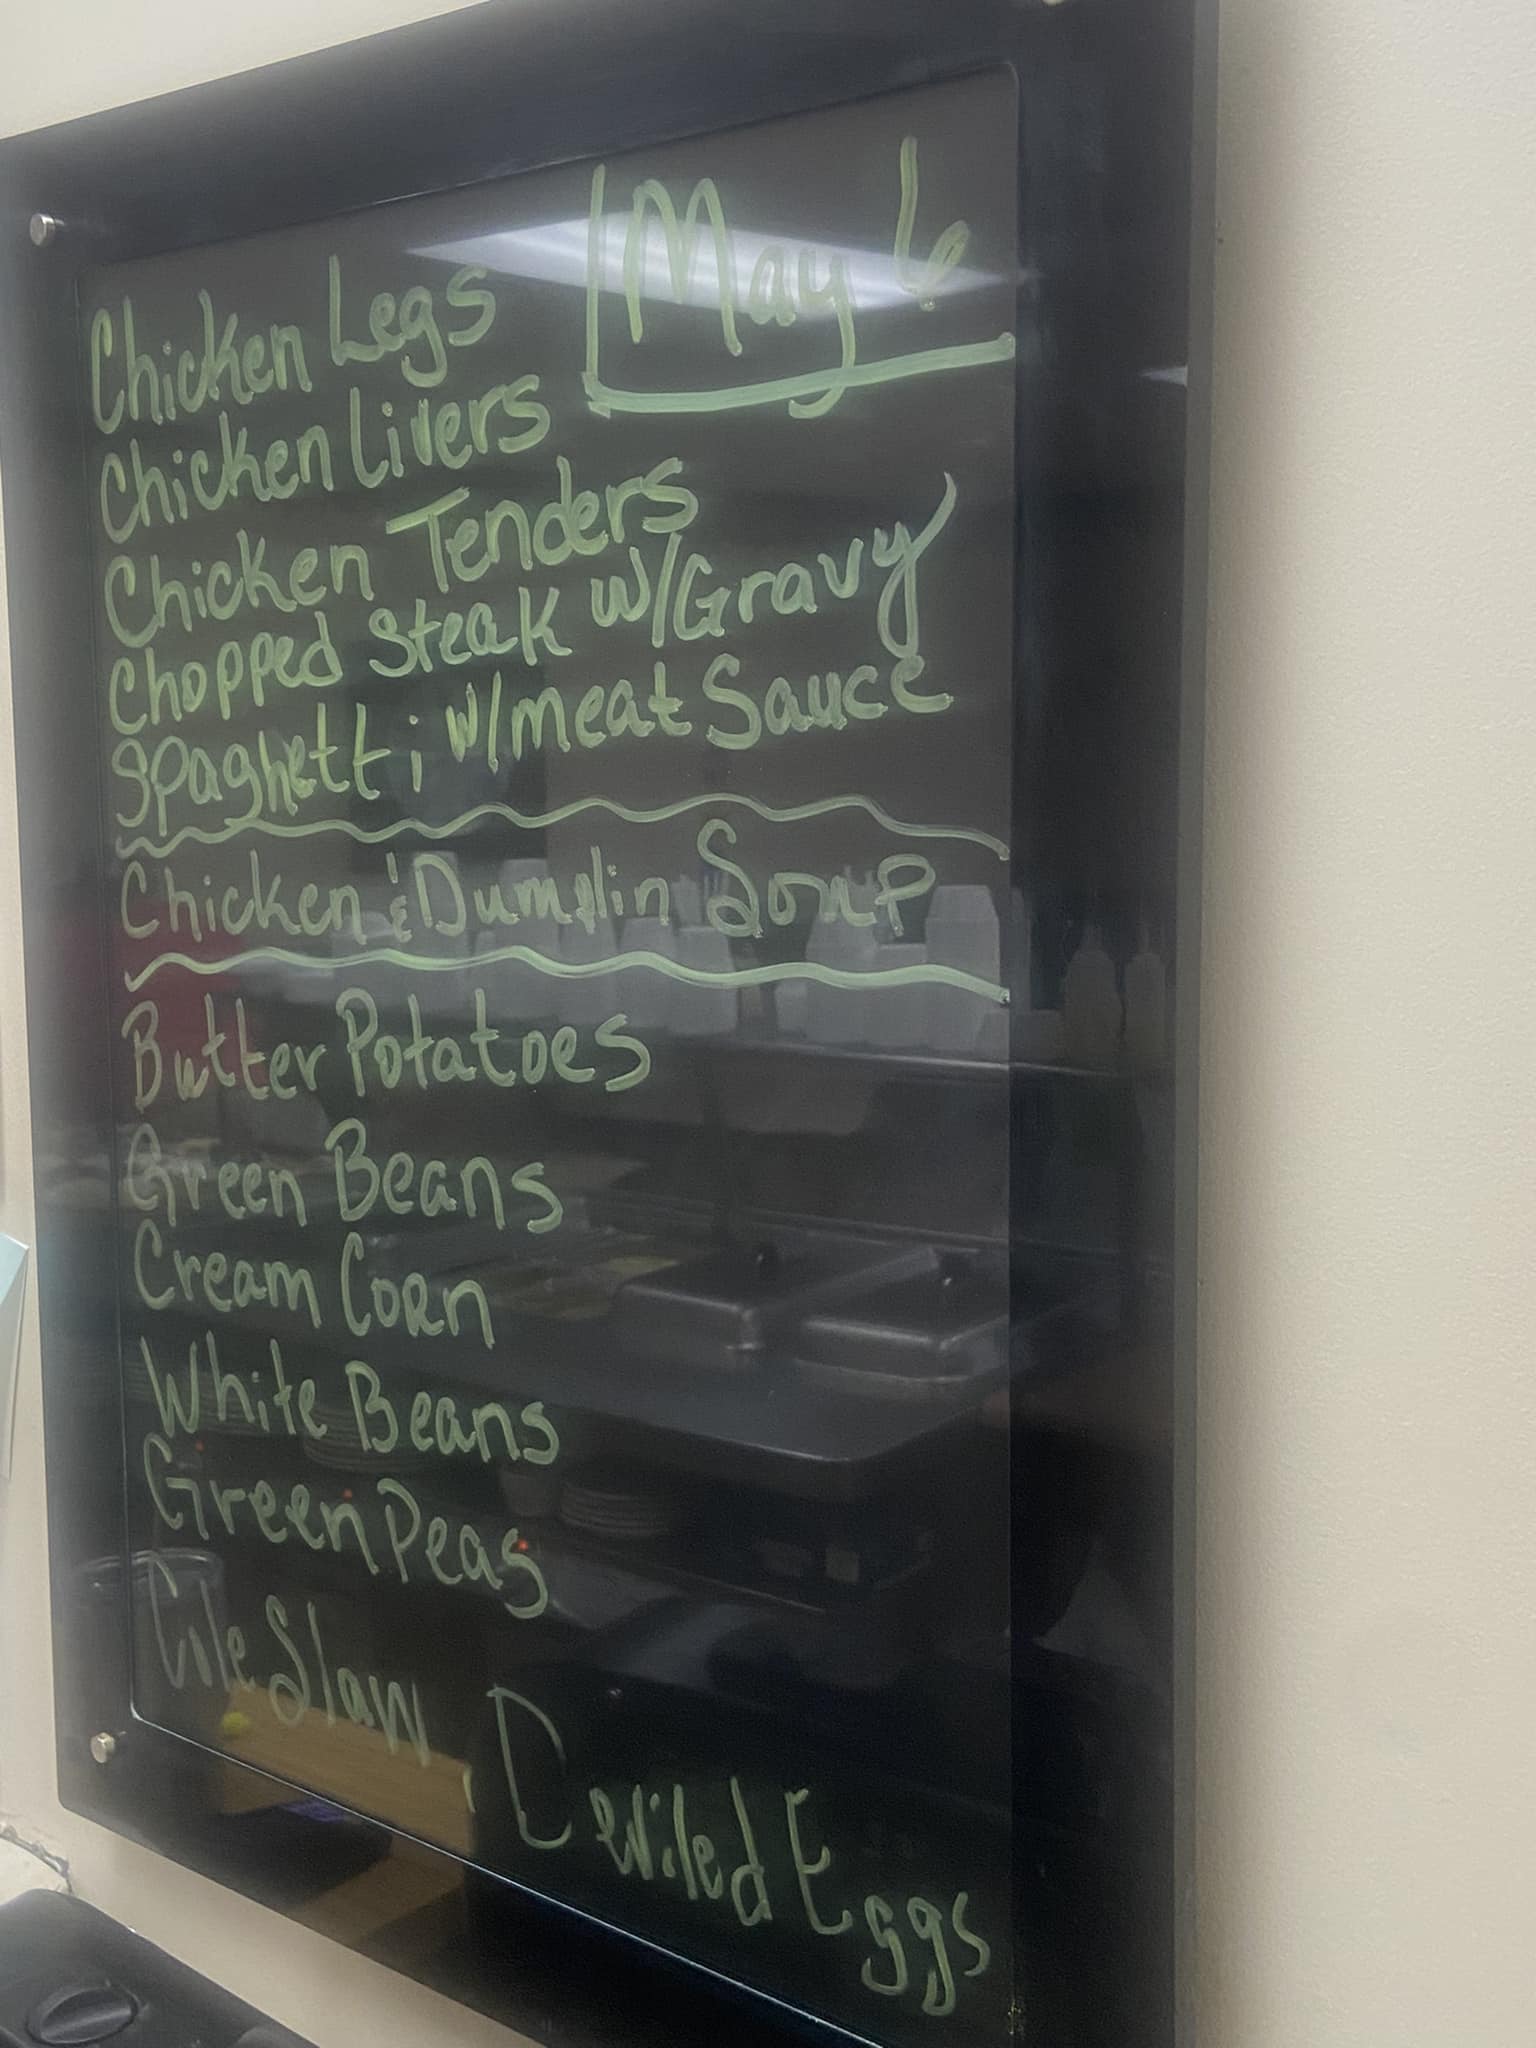 May 6
Chicken Legs
Chicken Livers
Chicken Tenders
Chopped Steak w/Gravy
Spaghetti w/meat Sauce
Chicken & Dumplin Soup
Butter Potatoes
Green Beans
Cream Corn
White Beans
Green Peas
Cole Slaw, Deviled Eggs